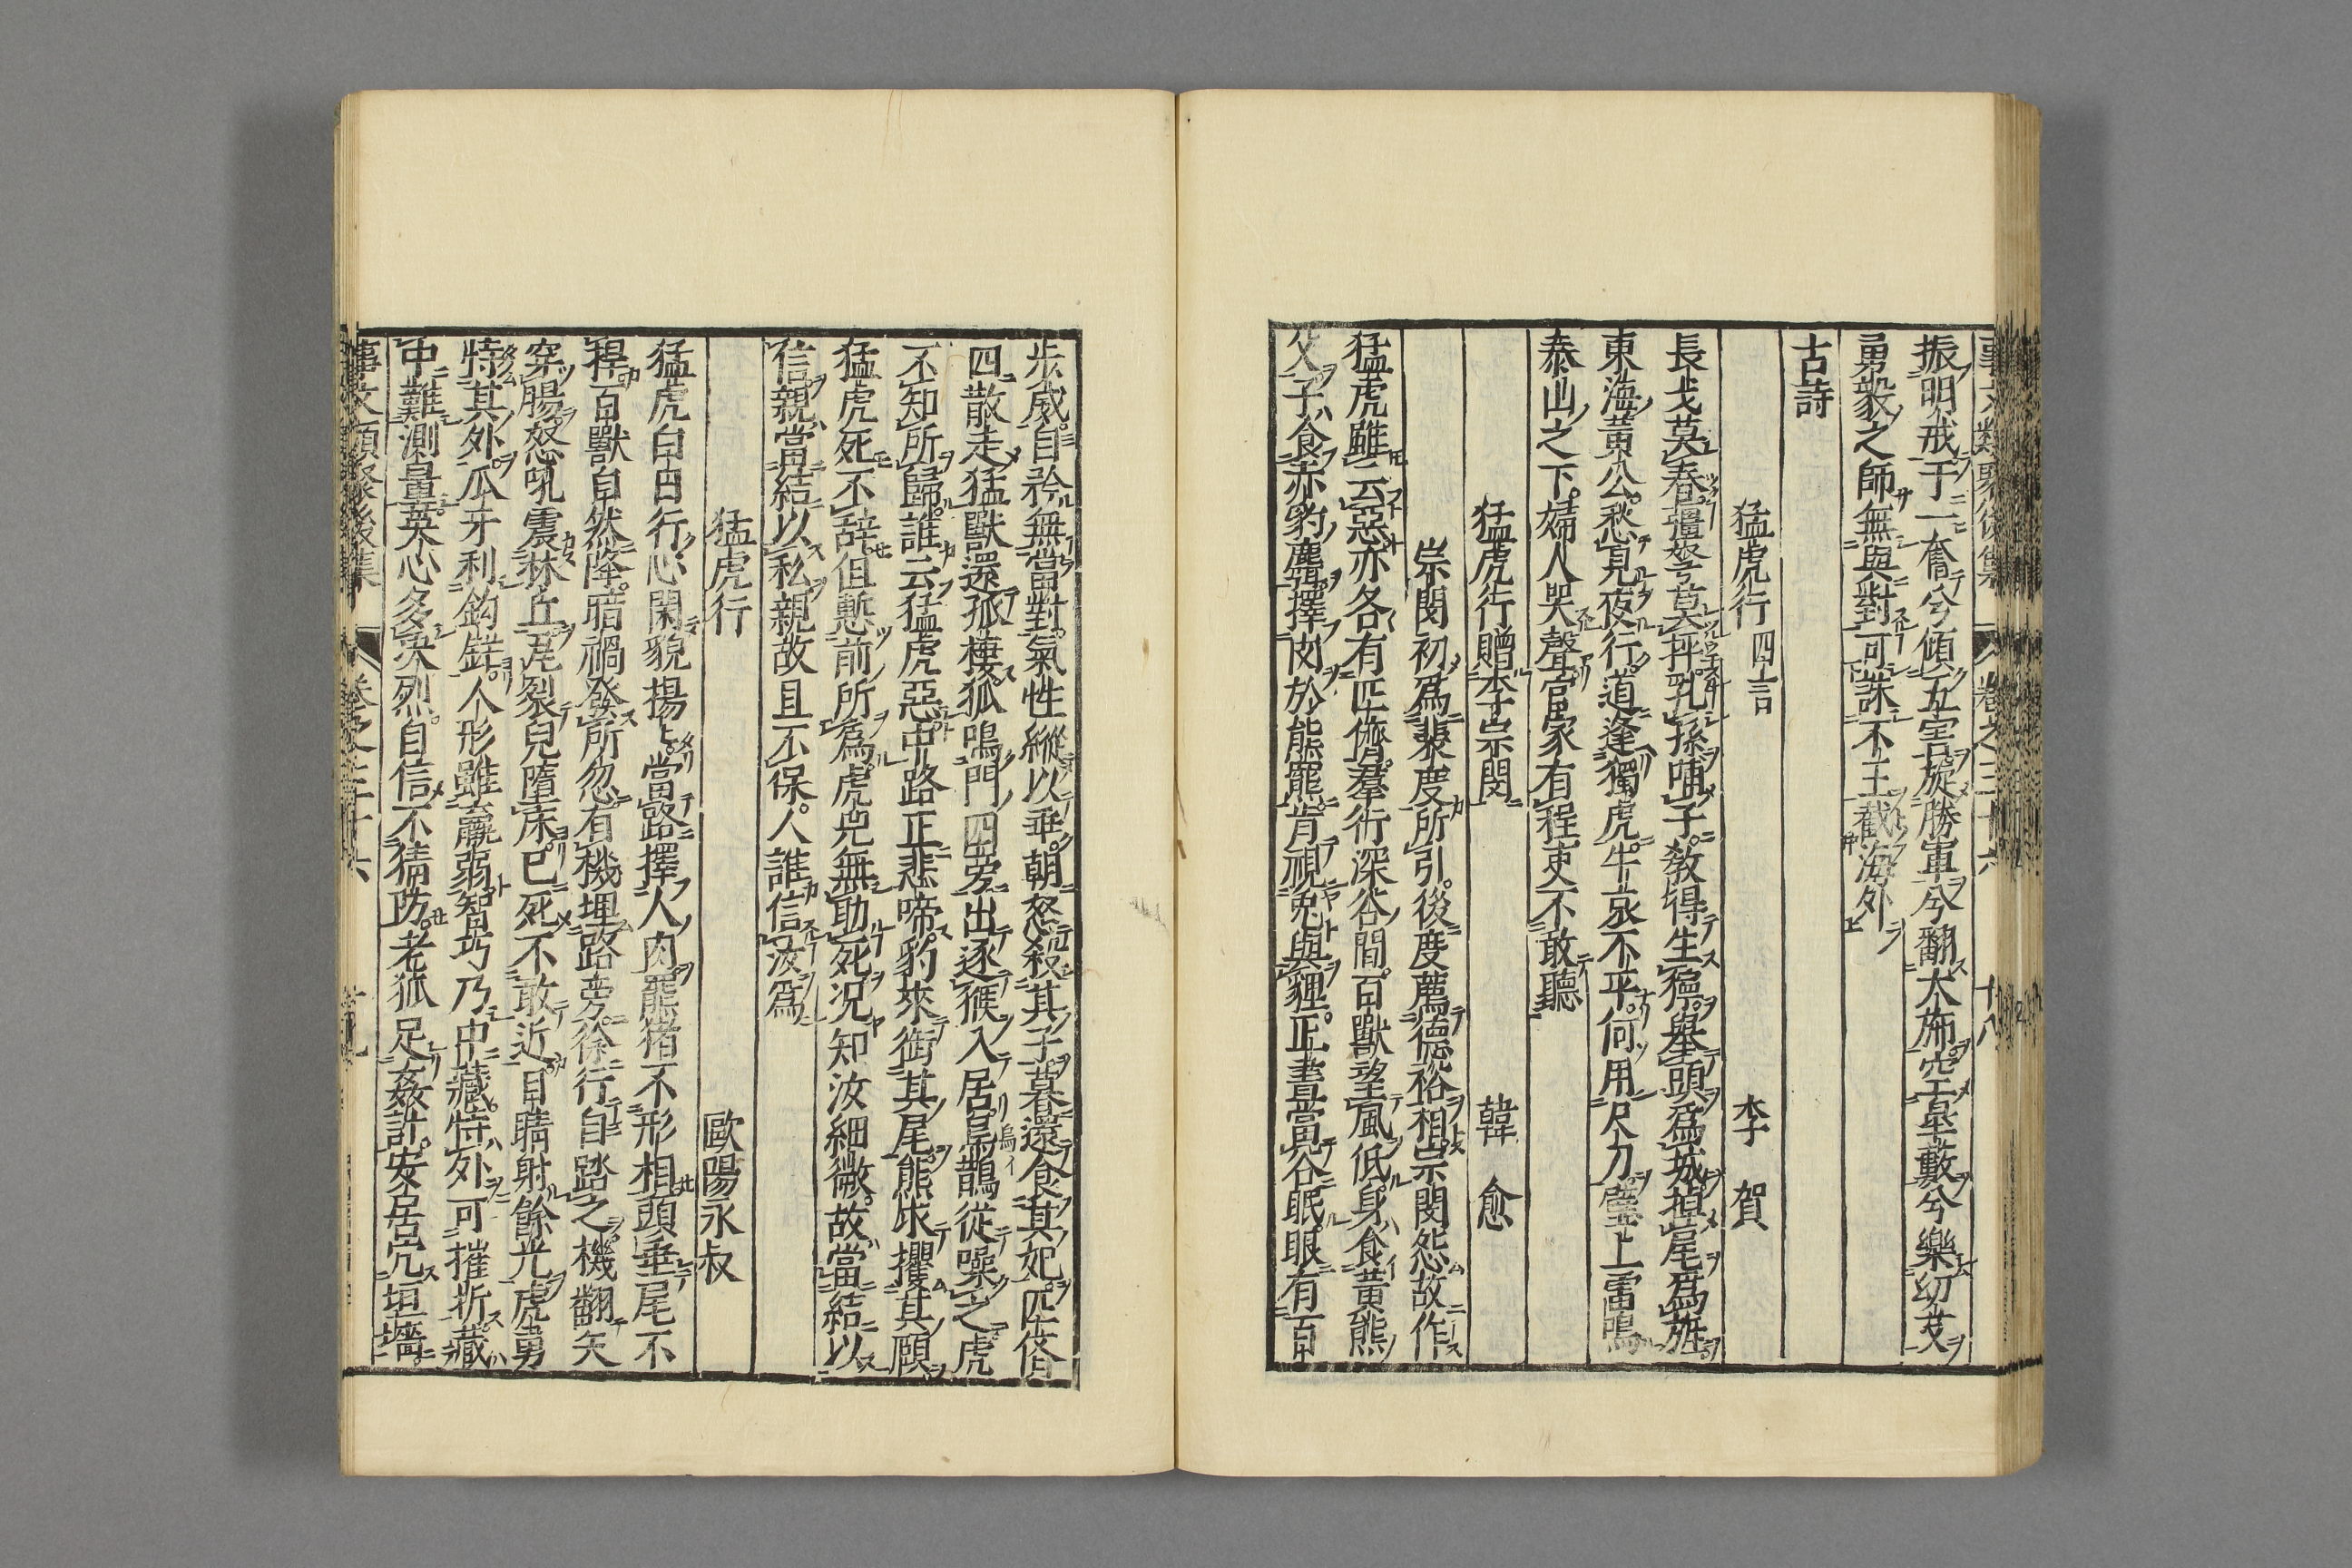 振明戒于一奮兮傾五室旋勝軍兮翻大旆空墨藪兮樂幼艾
勇毅之師無與對可誅不王截海外
古詩
猛虎行 四言 李賀
長戈莫舂彊弩莫抨乳孫哺子教得生獰舉頭爲城掉尾爲旌
東海黃公愁見夜行道逢騶虞牛哀不平何用尺刀壁上雷鳴
泰山之下婦人哭聲官家有程吏不敢聽
猛虎行贈李宗閔 韓愈
宗閔初爲裴度所引後度薦德裕相宗閔怨故作
猛虎雖云惡亦各有匹儕羣行深谷間百獸望風低身食黃熊
父子食赤豹麛擇肉於熊羆肯視兔與貍正晝當谷眠眼有百
步威自矜無當對氣性縱以乖朝怒殺其子暮還食其妃匹儕
四散走猛獸還孤棲狐鳴門四旁出逐猴入居烏鵲從噪之虎
不知所歸誰云猛虎惡中路正悲啼豹來銜其尾熊來攫其頤
猛虎死不辞但慙前所爲虎兕無助死況知汝細微故當結以
信親當結以私親故且不保人誰信汝爲
猛虎行 歐陽永叔
猛虎白日行心閑貌揚〻當路擇人肉羆猪不形相頭垂尾不
掉百獸自然降暗禍發所忽有機埋路旁徐行自踏之機翻矢
穿腸怒吼震林丘瓦裂兒墮床已死不敢近目睛射餘光虎勇
恃其外爪牙利鈎鋩人形雖羸弱智巧乃中藏恃外可摧折藏
中難測量英心多決烈自信不猜防老狐足姦計安居穴垣墻
事文類聚後集 卷之三十六